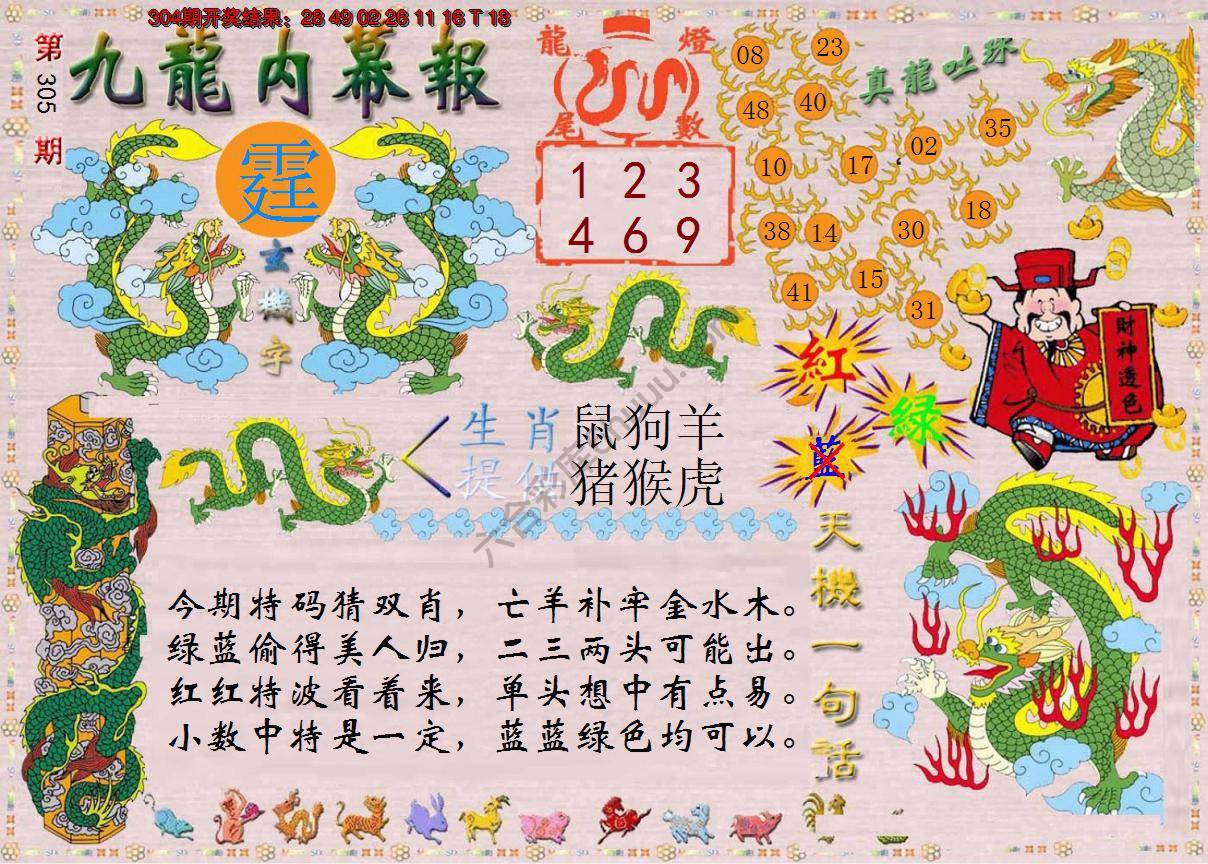 304期开奖结果：28 49 02 26 11 16 T 18
第305期
九龍内幕報
霆
玄機字
龍燈
尾數
1 2 3
4 6 9
真龍吐珠
08
23
48
40
10
17
02
35
38
14
30
18
41
15
31
財神透色
紅
綠
藍
生肖
提供
鼠狗羊
猪猴虎
今期特码猜双肖，亡羊补牢金水木。
绿蓝偷得美人归，二三两头可能出。
红红特波看着来，单头想中有点易。
小数中特是一定，蓝蓝绿色均可以。
天機一句話